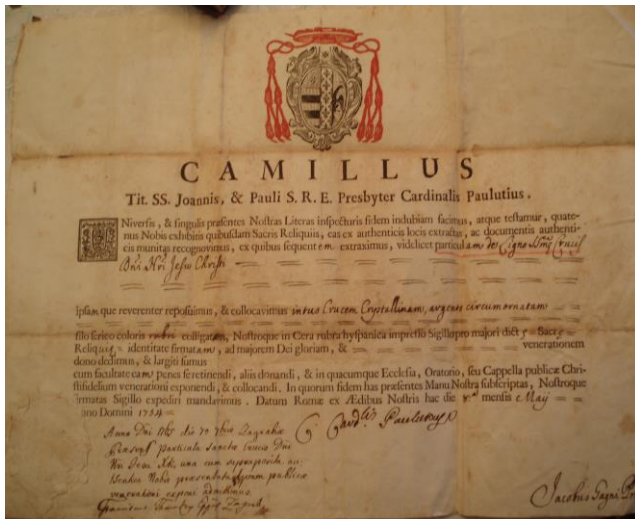 CAMILLUS
Tit. SS. Joannis, & Pauli S. R. E. Presbyter Cardinalis Paulutius.
UNiversis, & singulis præsentes Nostras Literas inspecturis fidem indubiam facimus, atque testamur, quate-
nus Nobis exhibitis quibusdam Sacris Reliquiis, eas ex authenticis locis extractas, ac documentis authenti-
cis munitas recognovimus, ex quibus sequentem extraximus, videlicet particulam de Ligno SSmæ Crucis
Dñi Nri Jesu Christi
Ipsam que reverenter reposuimus, & collocavimus intus Crucem Crystallinam, argento circumornatam
filo serico coloris rubri colligatam, Nostroque in Cera rubra hyspanica impresso Sigillo pro majori dictæ Sacræ
Reliquiæ identitate firmatam, ad majorem Dei gloriam, & venerationem
dono dedimus, & largiti sumus
cum facultate eam penes se retinendi, aliis donandi, & in quacumque Ecclesia, Oratorio, seu Cappella publicæ Chri-
stifidelium venerationi exponendi, & collocandi. In quorum fidem has præsentes Manu Nostra subscriptas, Nostroque
firmatas Sigillo expediri mandavimus. Datum Romæ ex Ædibus Nostris hac die mensis Maij
Anno Domini 1754
C. Cardlis Paulutius
Anno Dni die Zagrabiæ
particula Sanctæ Crucis Dñi
Nri Jesu Xti, una cum
Nobis præsentata publicæ
venerationi exponi admittimus
Jacobus